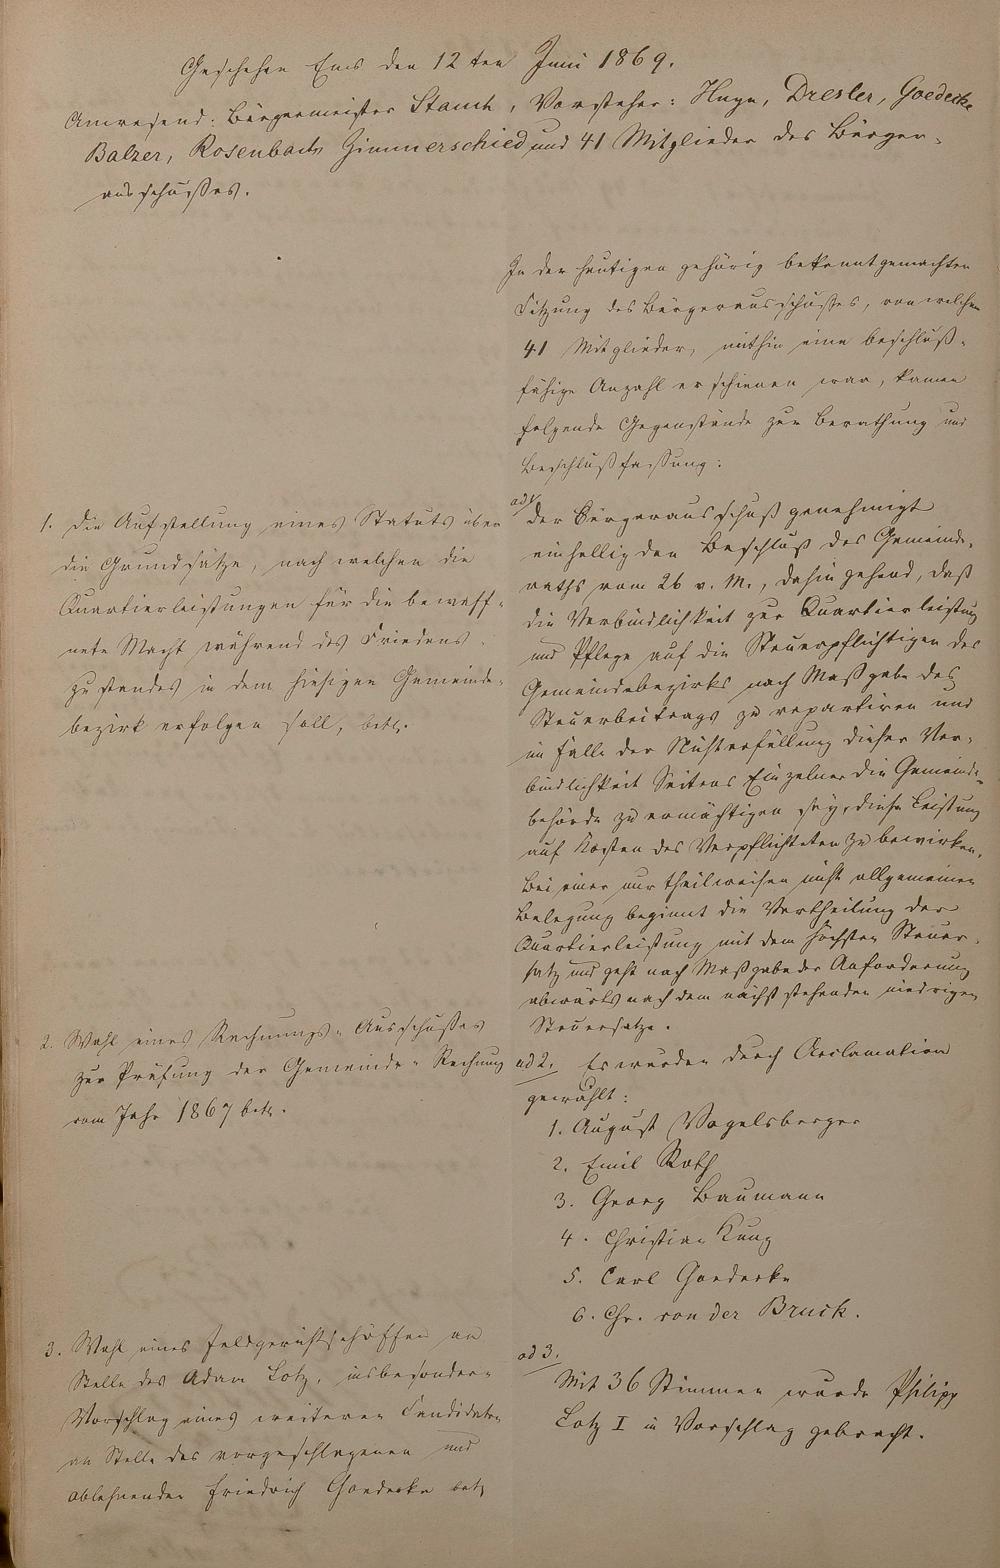 Geschehen Ems den 12ten Juni 1869.
Anwesend: Bürgermeister Stamm, Vorsteher: Haya, Dresler, Goedecke
Balzer, Rosenbach, Gimmerschied und 41 Mitglieder des Bürger-
ausschußes.
In der heutigen gehörig bekannt gemachten
Sitzung des Bürgerausschußes, von welchen
41 Mitglieder, mithin eine beschluß-
fähige Anzahl erschienen war, kamen
folgende Gegenstände zur Berathung und
Beschlußfassung:
1. Die Aufstellung eines Statuts über
die Grundsätze, nach welchen die
Quartierleistungen für die bewaff-
nete Macht während des Friedens-
zustandes in dem hiesigen Gemeinde-
bezirk erfolgen soll, betr.
ad 1. Der Bürgerausschuß genehmigt
einhellig den Beschluß des Gemeinde-
raths vom 26 v. M., dahin gehend, daß
die Verbindlichkeit zur Quartierleistung
und Pflege auf die Steuerpflichtigen des
Gemeindebezirks nach Maßgabe des
Steuerbeitrags zu repartiren und
im Falle der Nichterfüllung dieser Ver-
bindlichkeit Seitens Einzelner die Gemeinde-
behörde zu ermächtigen sey, diese Leistung
auf Kosten des Verpflichteten zu bewirken.
Bei einer nur theilweisen nicht allgemeinen
Belegung beginnt die Vertheilung der
Quartierleistung mit dem höchsten Steuer-
satz und geht nach Maßgabe der Anforderung
abwärts nach dem nächst stehenden niedrigen
Steuersatze.
2. Wahl eines Rechnungs-Ausschußes
zur Prüfung der Gemeinde-Rechnung
vom Jahr 1867 betr.
ad 2. Es wurden durch Acclamation
gewählt:
1. August Vogelsberger
2. Emil Roth
3. Georg Baumann
4. Christian Kunz
5. Carl Goedecke
6. Chr. von der Bruck.
3. Wahl eines Feldgerichtsschöffen an
Stelle des Adam Lotz, insbesondere
Vorschlag eines weiteren Candidaten
an Stelle des vorgeschlagenen und
ablehnenden Friedrich Goedecke betr.
ad 3.
Mit 36 Stimmen wurde Philipp
Lotz I in Vorschlag gebracht.